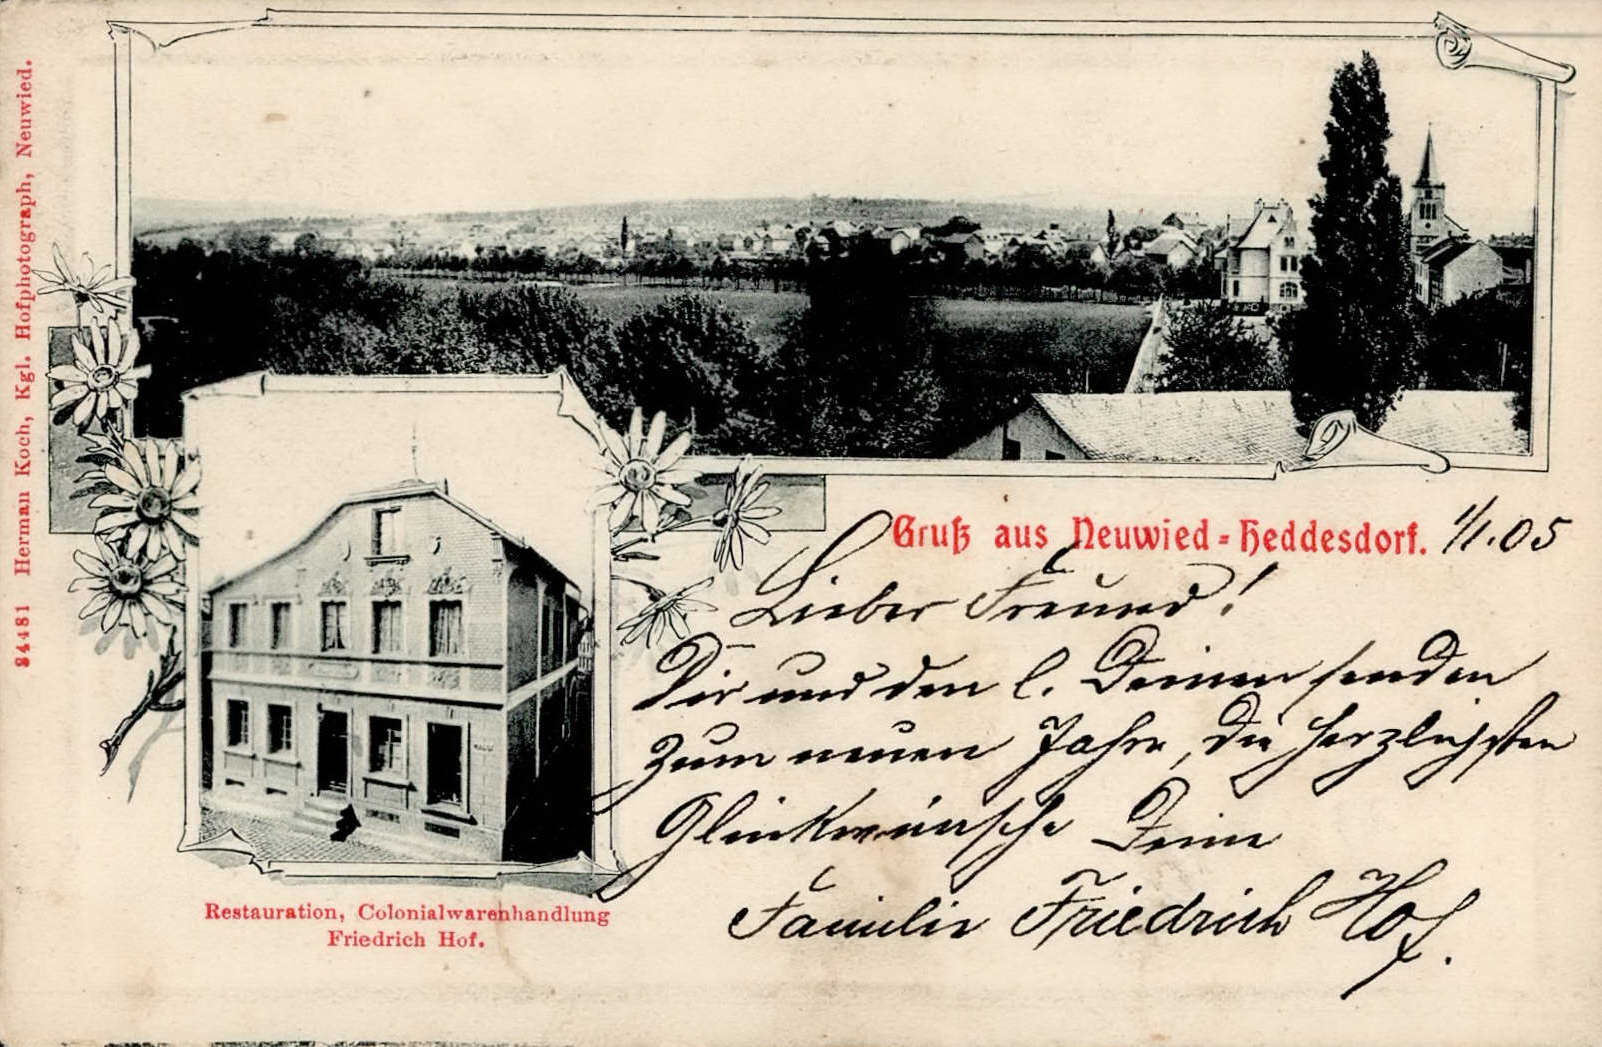 34481 Herman Koch, Kgl. Hofphotograph, Neuwied.
Gruß aus Neuwied-Heddesdorf. 1/1.05
Lieber Freund!
Dir und den l. Deinen senden
zum neuen Jahre, die herzlichsten
Glückwünsche Deine
Familie Friedrich Hof.
Restauration, Colonialwarenhandlung
Friedrich Hof.